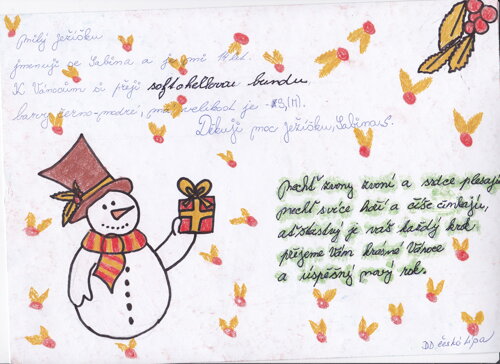 milý ježíšku
jmenuji se Sabina a je mi 14 let.
K Vánocům si přeji softshellovou bundu
barvy černo-modré, má velikost je - (M).
Děkuji moc Ježíšku, Sabina S.
Nechť zvony zvoní a srdce plesají
nechť svíce hoří a číše cinkají,
ať šťastný je váš každý krok
přejeme Vám krásné Vánoce
a úspěšný nový rok.
DD česká Lípa